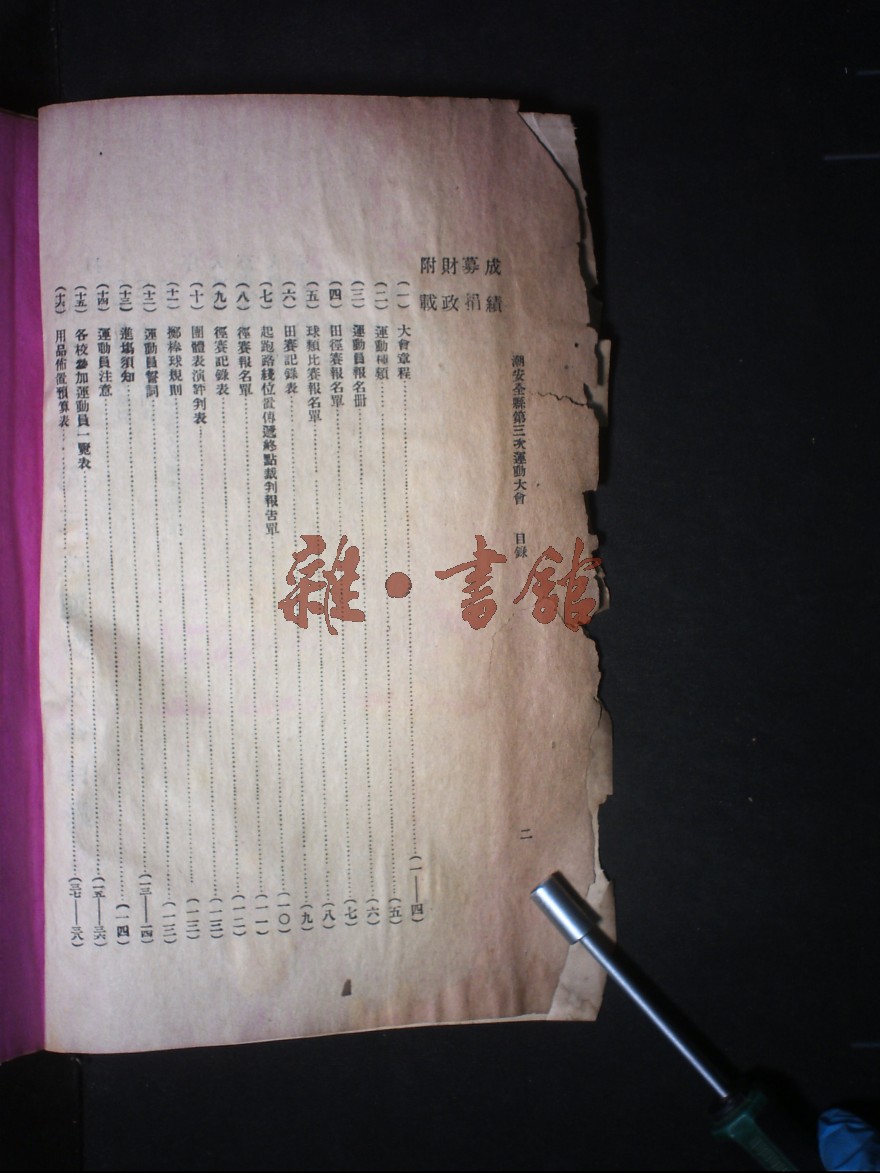 潮安全縣第三次運動大會 目錄 二
成績
募捐
財政
附載
(一)大會章程……(一——四)
(二)運動種類……(五)
(三)運動員報名冊……(六)
(四)田徑賽報名單……(七)
(五)球類比賽報名單……(八)
(六)田賽記錄表……(九)
(七)起跑路綫位置傳遞終點裁判報告單……(一〇)
(八)徑賽報名單……(一一)
(九)徑賽記錄表……(一二)
(十)團體表演評判表……(一三)
(十一)擲棒球規則……(一三)
(十二)運動員誓詞……(一三)
(十三)進場須知……(一三——一四)
(十四)運動員注意……(一四)
(十五)各校參加運動員一覽表……(一五——三六)
(十六)用品佈置預算表……(三七——三八)
雜·書館